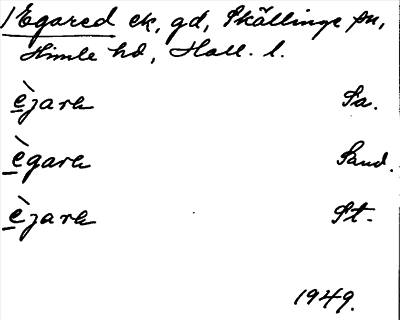 /Egared ek, gd, Skällinge sn,
Himle hd, Hall. l.
èjara Sa.
ègara Sand.
èjara St.
1949.